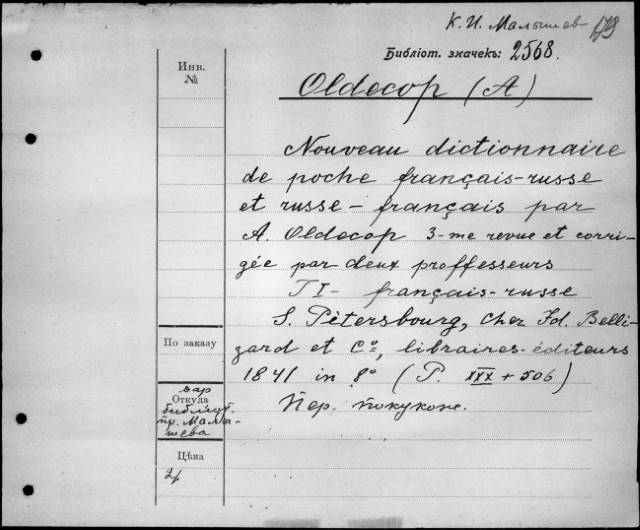 К. И. Малышев 179
Библіот. значекъ: 2568.
Инв.
№
Oldecop (A)
Nouveau dictionnaire
de poche français-russe
et russe - français par
A. Oldecop 3-me revue et corri-
gée par deux proffesseurs
T I - français-russe
S. Pètersbourg, chez Fd. Belli-
zard et Cº, libraires-éditeurs
1841 in 8º (P. XXX + 506)
По заказу
дар
Откуда
библіот.
пр. Малы-
шева
Пер.
Цѣна